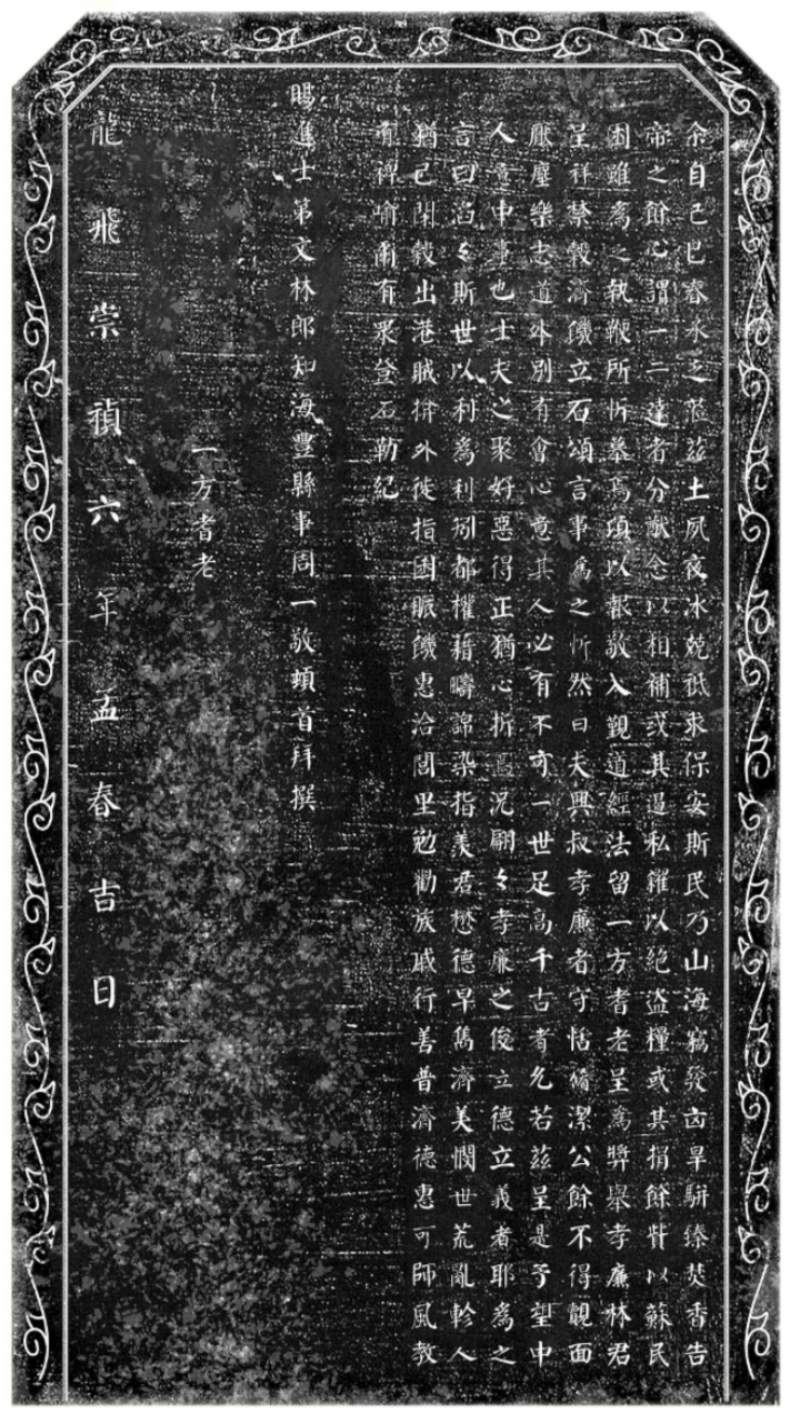 余自己巳春承乏茲土夙夜冰兢祗求保安斯民乃山海竊發凶旱駢臻焚香告
帝之餘心謂一二達者分猷念以相補或其遏私糴以絕盜糧或其捐餘貲以蘇民
困雖為之執鞭所忻慕焉頃以報敬入覲道經法留一方耆老呈為獎舉孝廉林君
呈祥禁穀濟饑立石頌言事為之忻然曰夫興叔孝廉者守恬脩潔公餘不得覿面
厭塵樂志道外別有會心意其人必有不可一世足高千古者乞若茲呈是予望中
人意中事也士夫之聚好惡得正猶心折焉況翩々孝廉之俊立德立義者耶為之
言曰滔々斯世以利為利郊都權藉疇諦染指羨君懋德早雋濟美憫世荒亂軫人
猶己閑穀出港賊摒外徙指囷賑饑惠洽閭里勉勸族戚行善普濟德惠可師風教
有裨喻爾有眾登石勒紀
賜進士第文林郎知海豐縣事周一敬頓首拜撰
一方耆老
龍飛崇禎六年孟春吉日